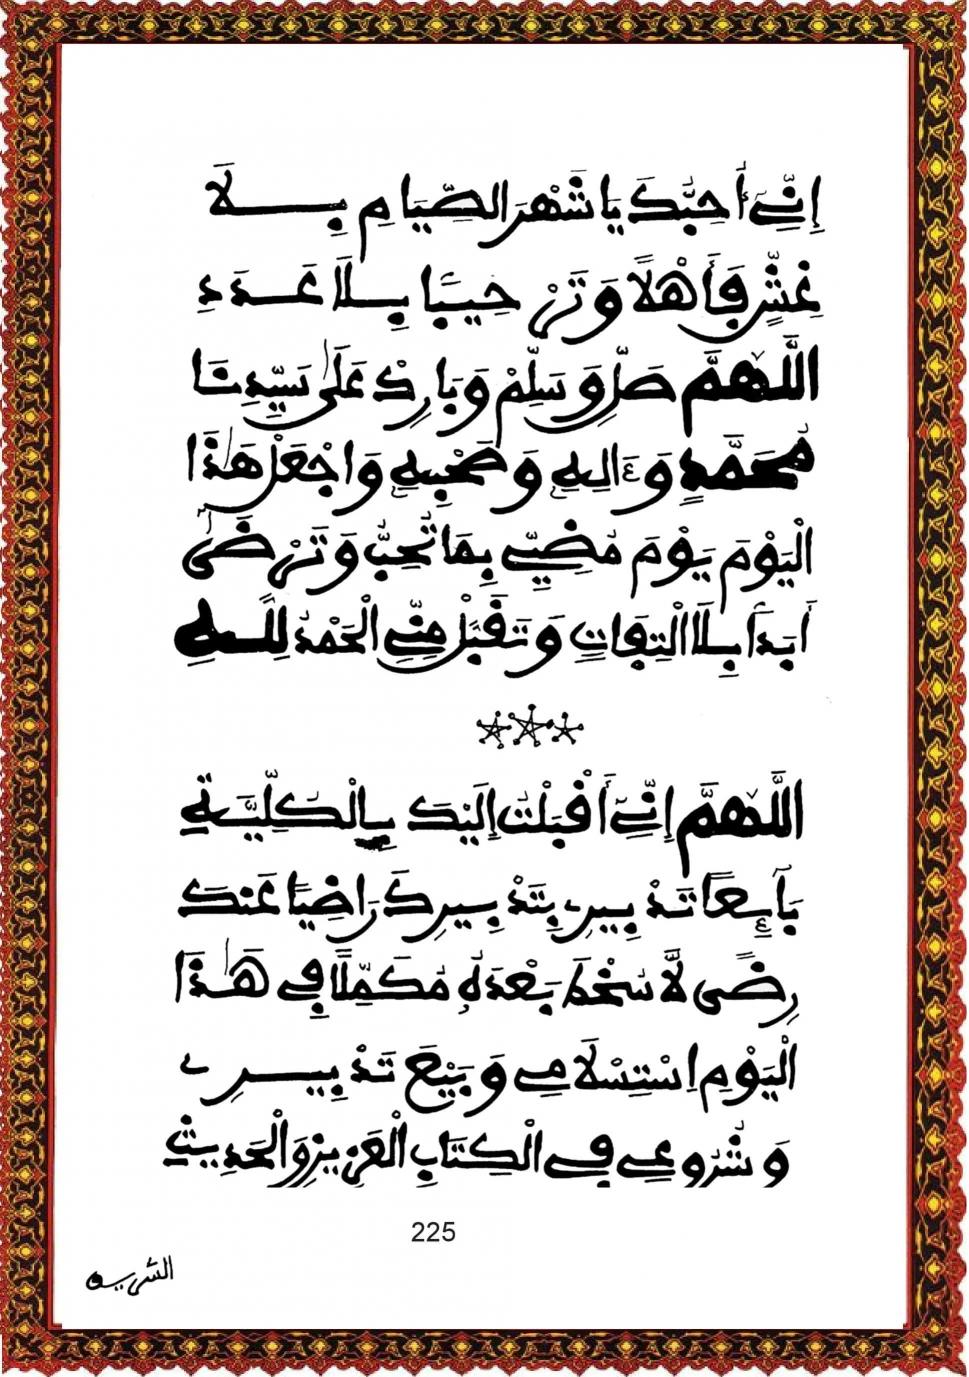 إِنِّي أُحِبُّكَ يَا شَهْرَ الصِّيَامِ بِلَا
غِشٍّ فَأَهْلًا وَتَرْحِيبًا بِلَا عَدَدِ
اللَّهُمَّ صَلِّ وَسَلِّمْ وَبَارِكْ عَلَى سَيِّدِنَا
مُحَمَّدٍ وَءَالِهِ وَصَحْبِهِ وَاجْعَلْ هَٰذَا
الْيَوْمَ يَوْمَ مُضِيِّي بِمَا تُحِبُّ وَتَرْضَىٰ
أَبَدًا بِلَا الْتِفَاتٍ وَتَقَبَّلْ مِنِّي الْحَمْدُ لِلَّهِ
اللَّهُمَّ إِنِّي أَقْبَلْتُ إِلَيْكَ بِالْكُلِّيَّةِ
بَائِعًا تَدْبِيرِي بِتَدْبِيرِكَ رَاضِيًا عَنكَ
رِضًى لَّا سُخْطَ بَعْدَهُ مُكَمِّلًا فِي هَٰذَا
الْيَوْمِ اِسْتِسْلَامِي وَبَيْعَ تَدْبِيرِي
وَشُرُوعِي فِي الْكِتَابِ الْعَزِيزِ وَالْحَدِيثِ
225
الشريف